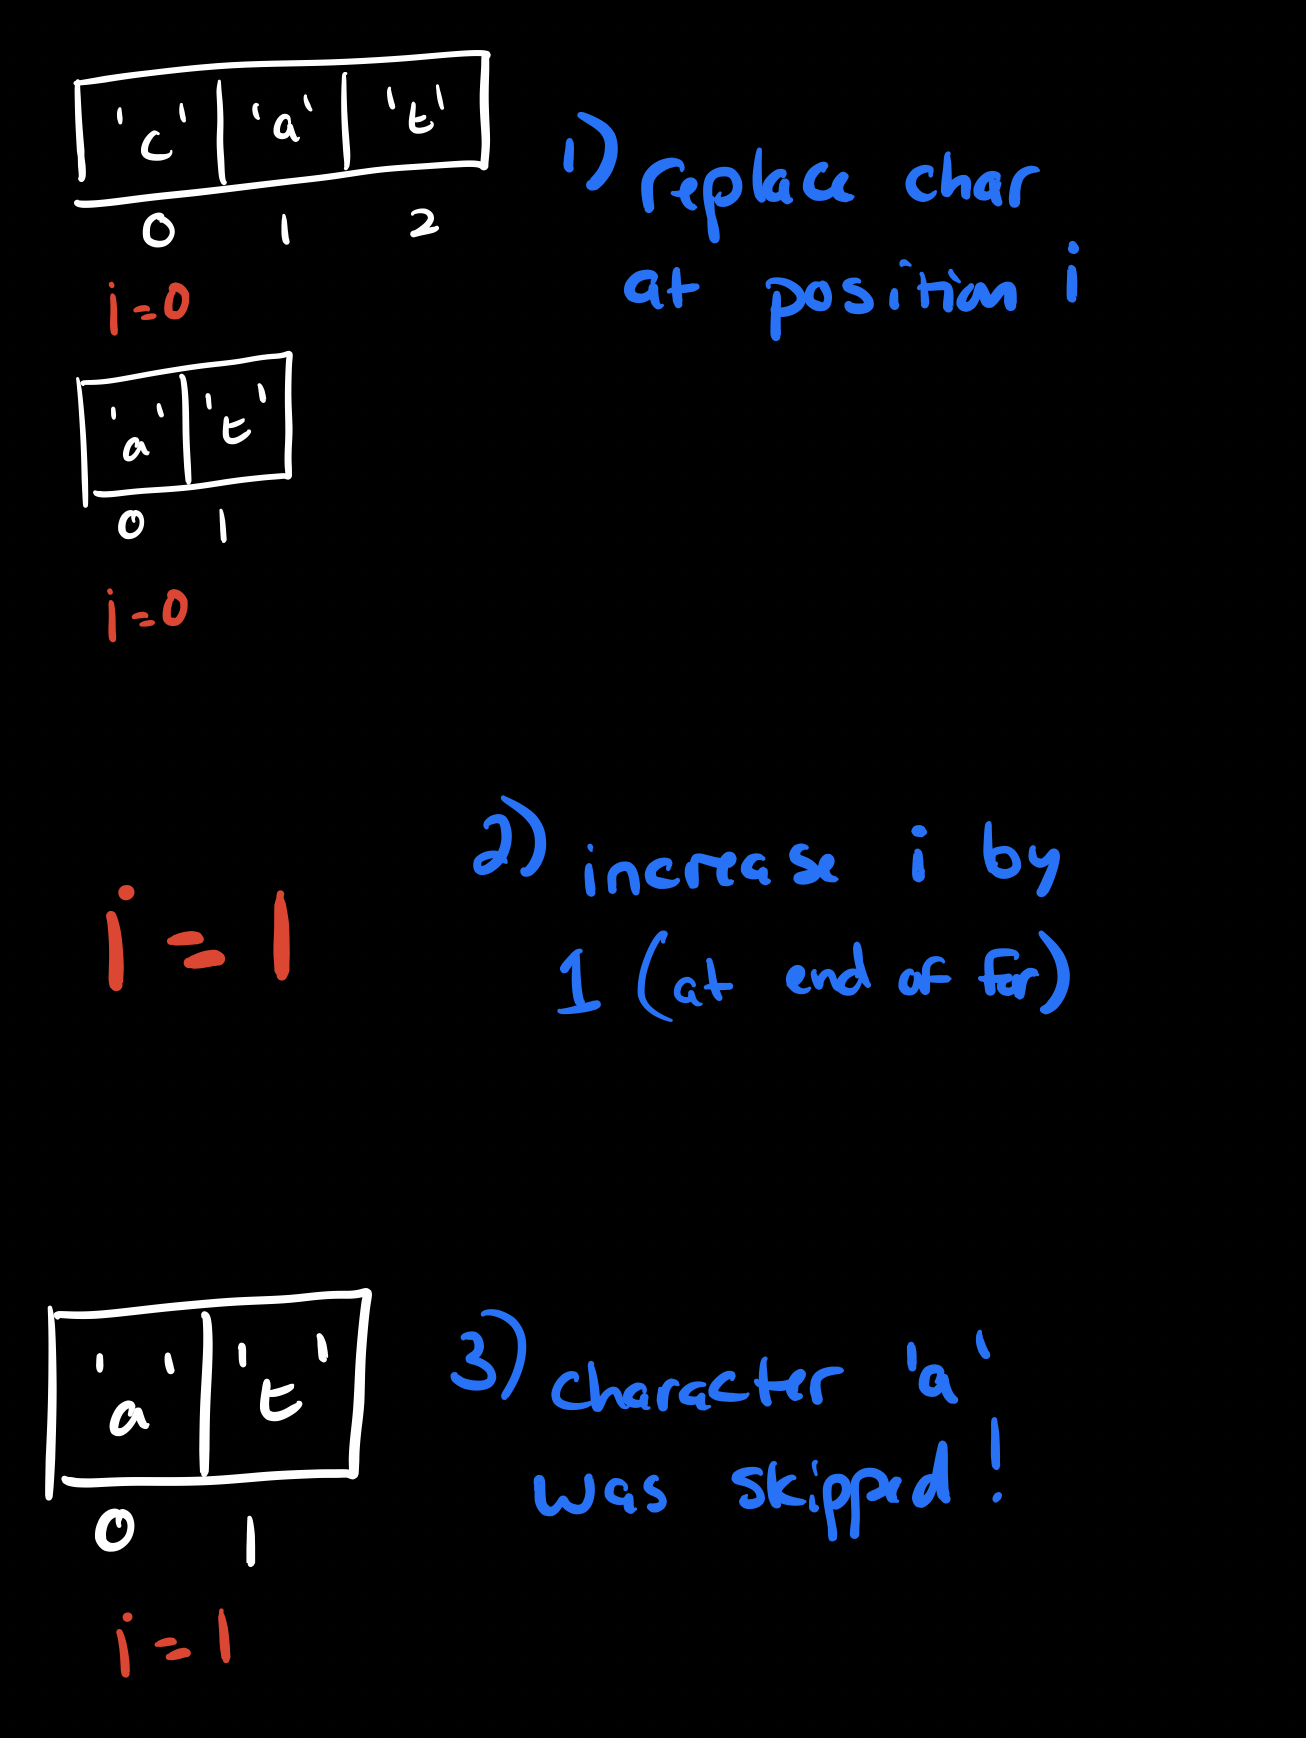 'c' 'a' 't'
0 1 2
i=0
1) replace char
at position i
'a' 't'
0 1
i=0
2) increase i by
1 (at end of for)
i = 1
'a' 't'
0 1
i = 1
3) character 'a'
was skipped!